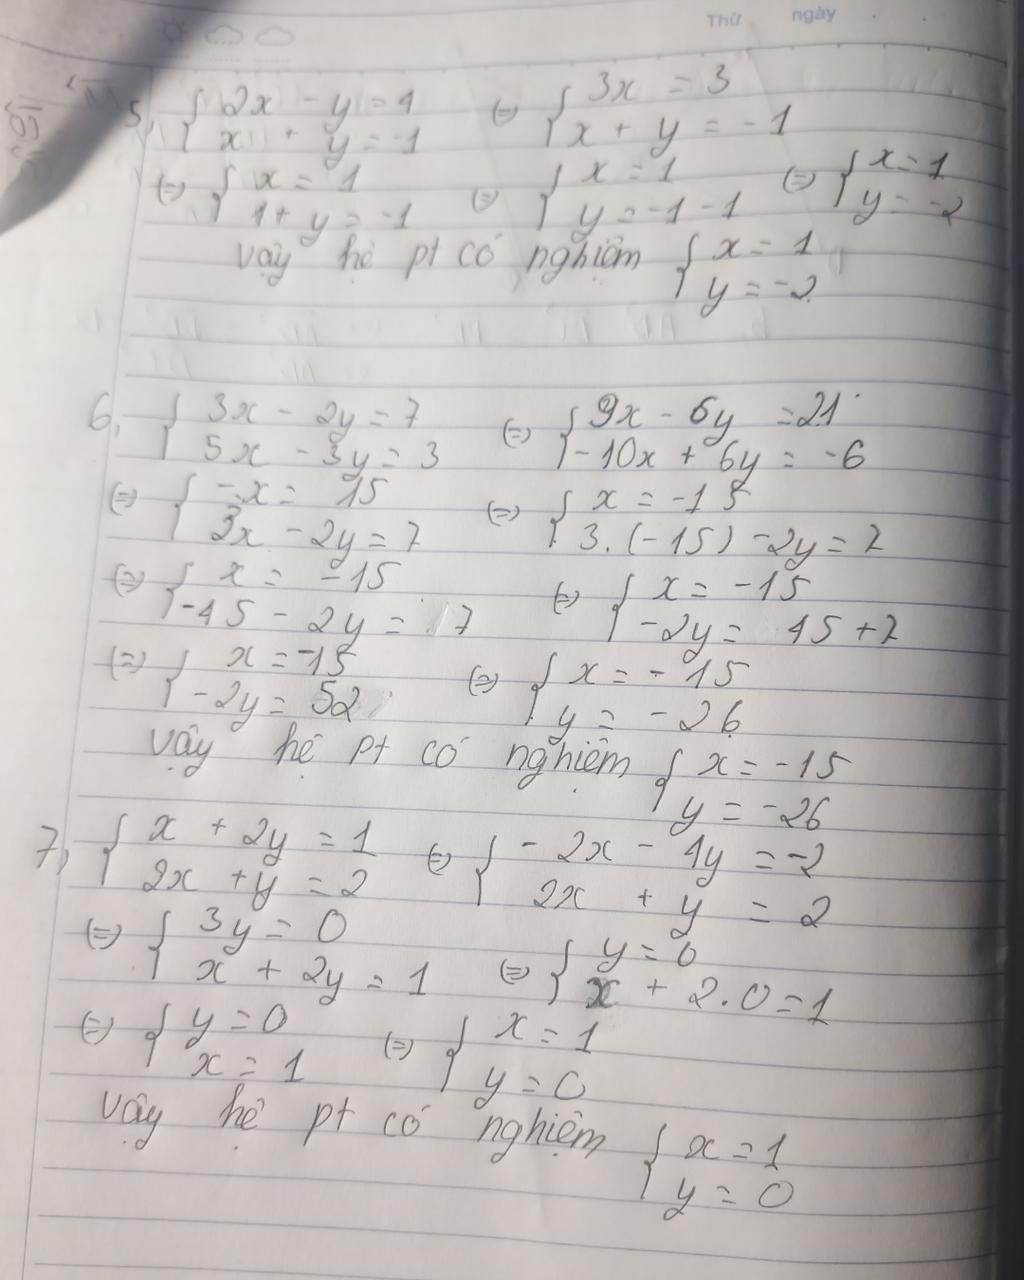 Thứ ngày
5, { 2x - y = 4 (=) { 3x = 3
x + y = -1 x + y = -1
(=) { x = 1 (=) { x = 1 (=) { x = 1
1 + y = -1 y = -1 - 1 y = -2
vậy hệ pt có nghiệm { x = 1
y = -2
6, { 3x - 2y = 7 (=) { 9x - 6y = 21
5x - 3y = 3 -10x + 6y = -6
(=) { -x = 15 (=) { x = -15
3x - 2y = 7 3.(-15) - 2y = 7
(=) { x = -15 (=) { x = -15
-45 - 2y = 7 -2y = 45 + 7
(=) { x = -15 (=) { x = -15
-2y = 52 y = -26
vậy hệ pt có nghiệm { x = -15
y = -26
7, { x + 2y = 1 (=) { -2x - 4y = -2
2x + y = 2 2x + y = 2
(=) { 3y = 0 (=) { y = 0
x + 2y = 1 x + 2.0 = 1
(=) { y = 0 (=) { x = 1
x = 1 y = 0
vậy hệ pt có nghiệm { x = 1
y = 0